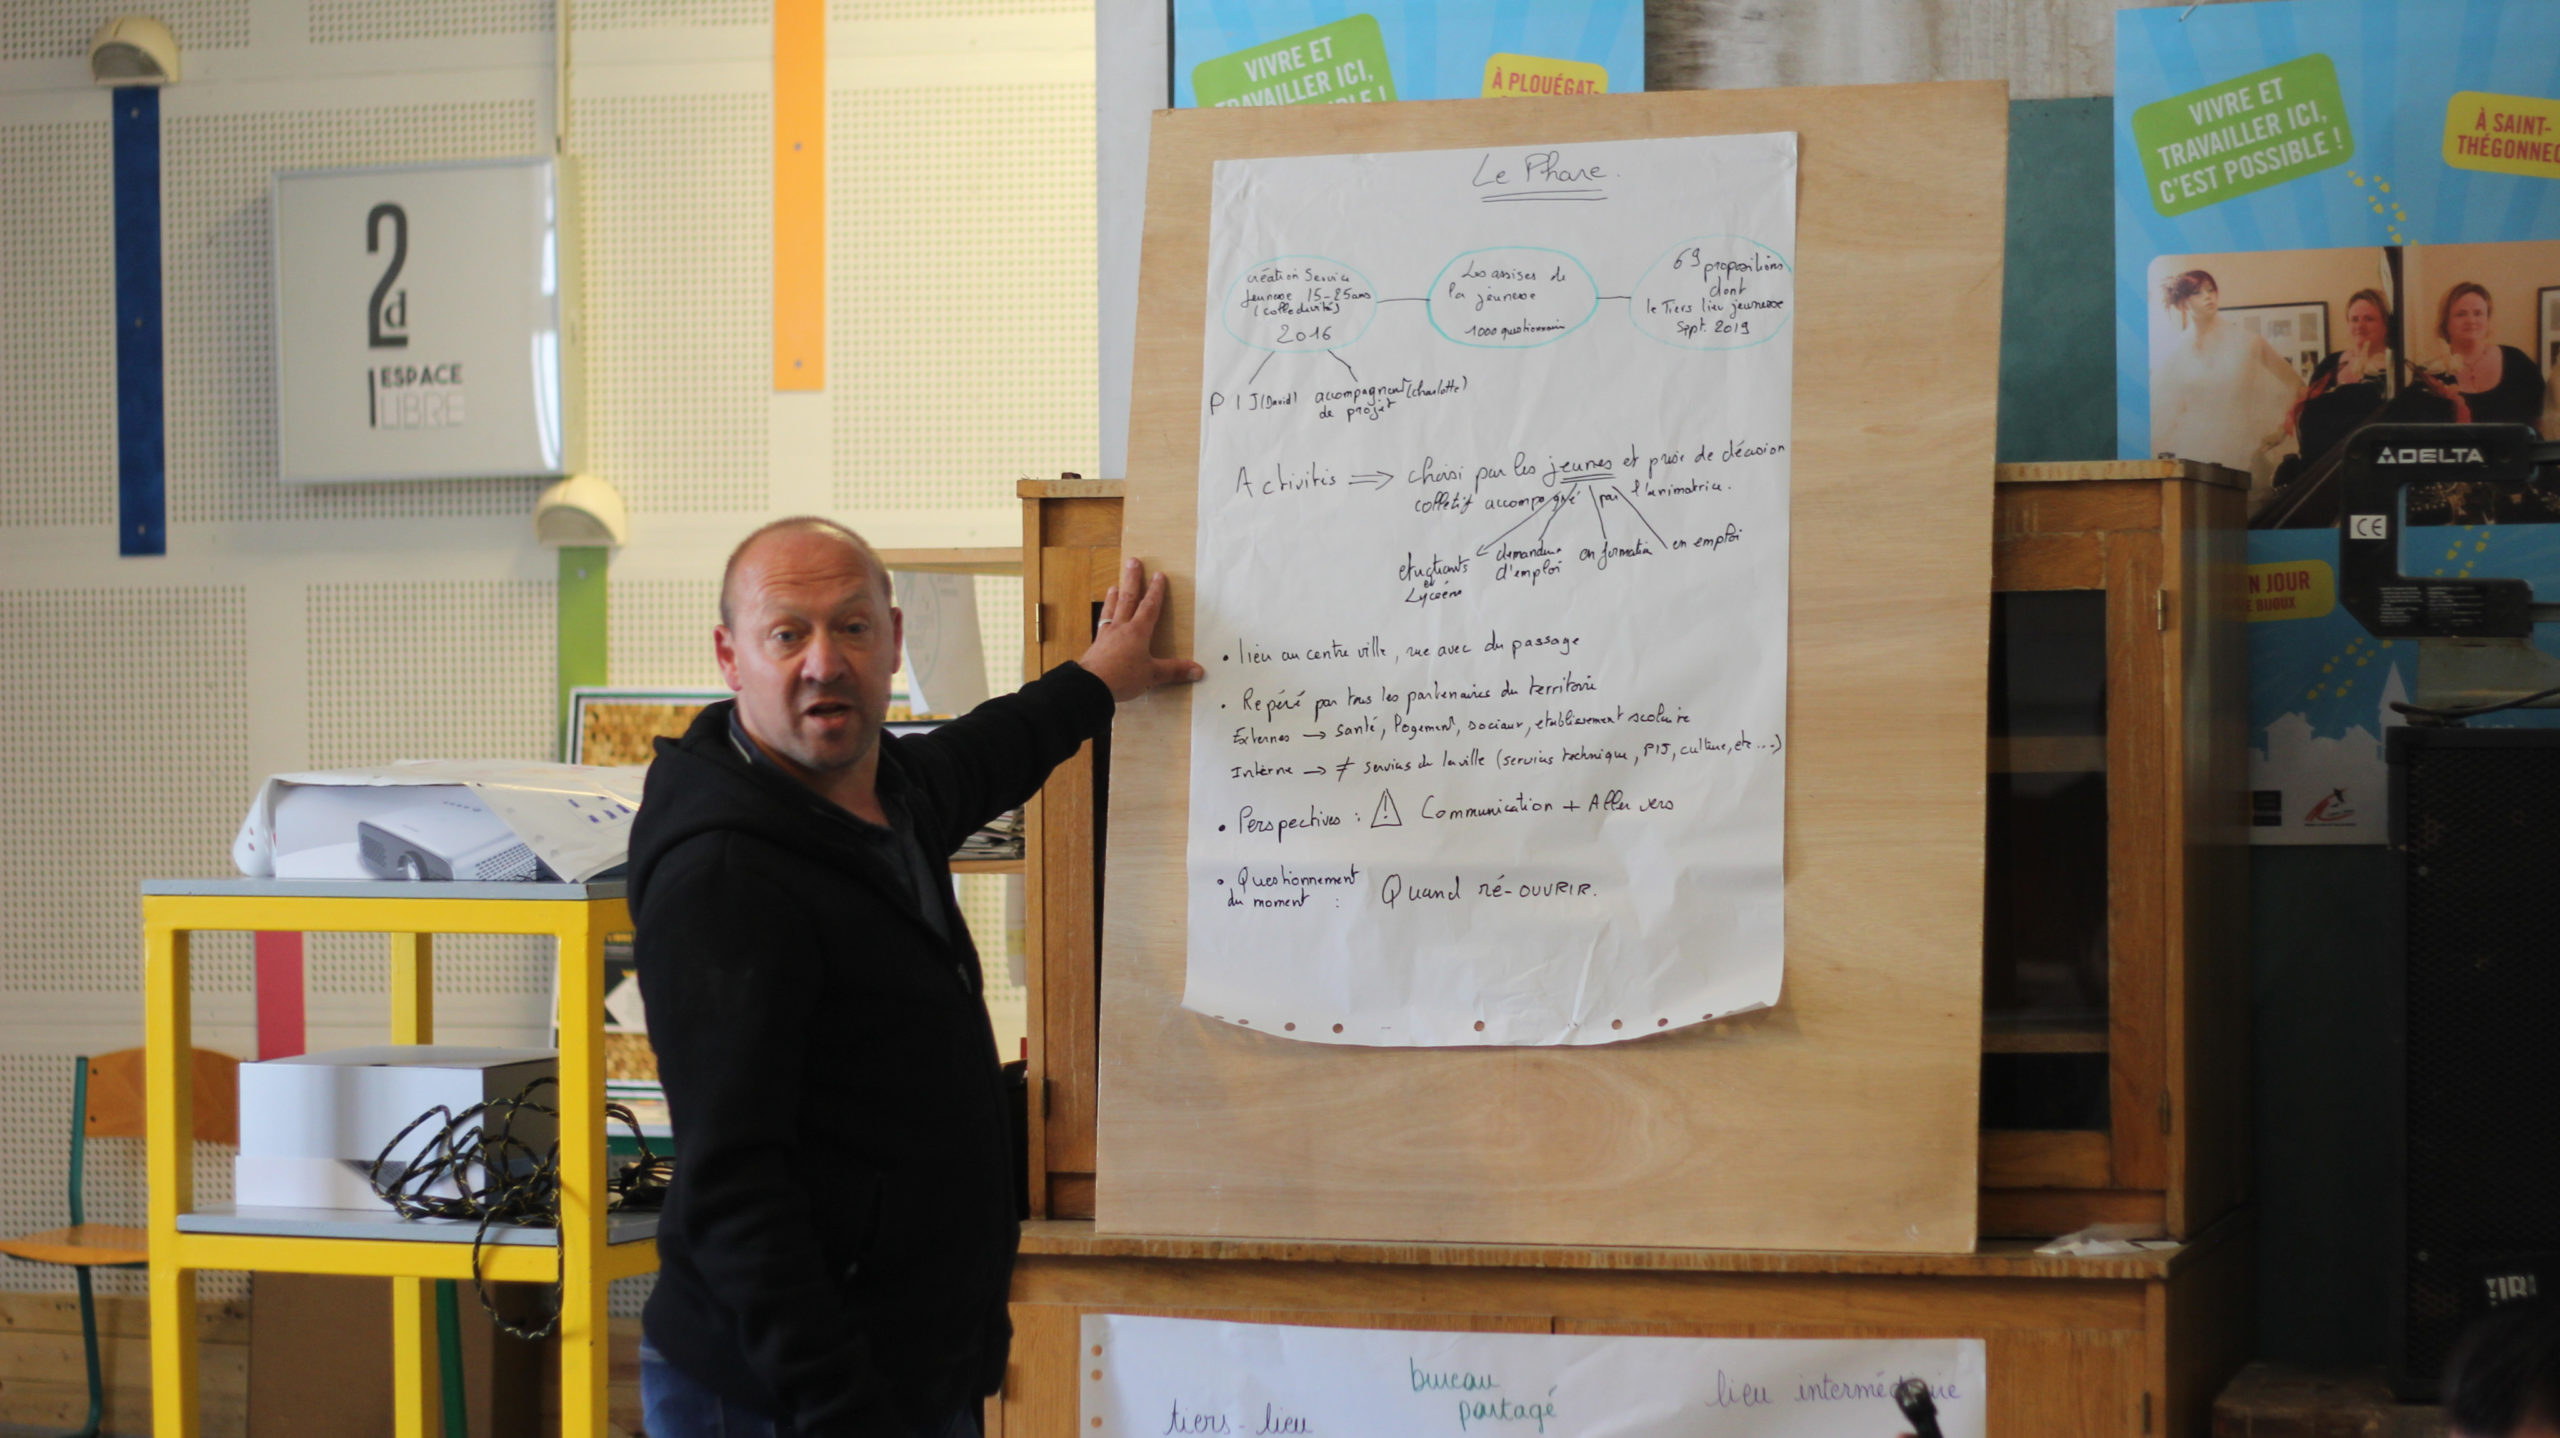 VIVRE ET
TRAVAILLER ICI,
À PLOUÉGAT-
VIVRE ET
TRAVAILLER ICI,
C'EST POSSIBLE !
À SAINT-
THÉGONNEC
2d
ESPACE
LIBRE
Le Phare.
création Service
Jeunesse 15-25ans
(collectivités)
2016
Les assises de
la jeunesse
1000 questionnaire
69 propositions
dont
le Tiers lieu jeunesse
Sept. 2019
PIJ (David)
accompagnant (charlotte)
de projet
Activités ⇒ choisi par les jeunes et prise de décision
collectif accompagné par l'animatrice.
etudiants
et
Lycéens
demandeur
d'emploi
en formation
en emploi
• lieu au centre ville, rue avec du passage
• Repéré par tous les partenaires du territoire
Externes → santé, logement, sociaux, etablissement scolaire
Interne → ≠ services de la ville (services technique, PIJ, culture, etc ....)
• Perspectives : ⚠ Communication + Aller vers
• Questionnement
du moment :
Quand ré-OUVRIR.
DELTA
CE
N JOUR
BIJOUX
tiers-lieu
bureau
partagé
lieu intermédiaire